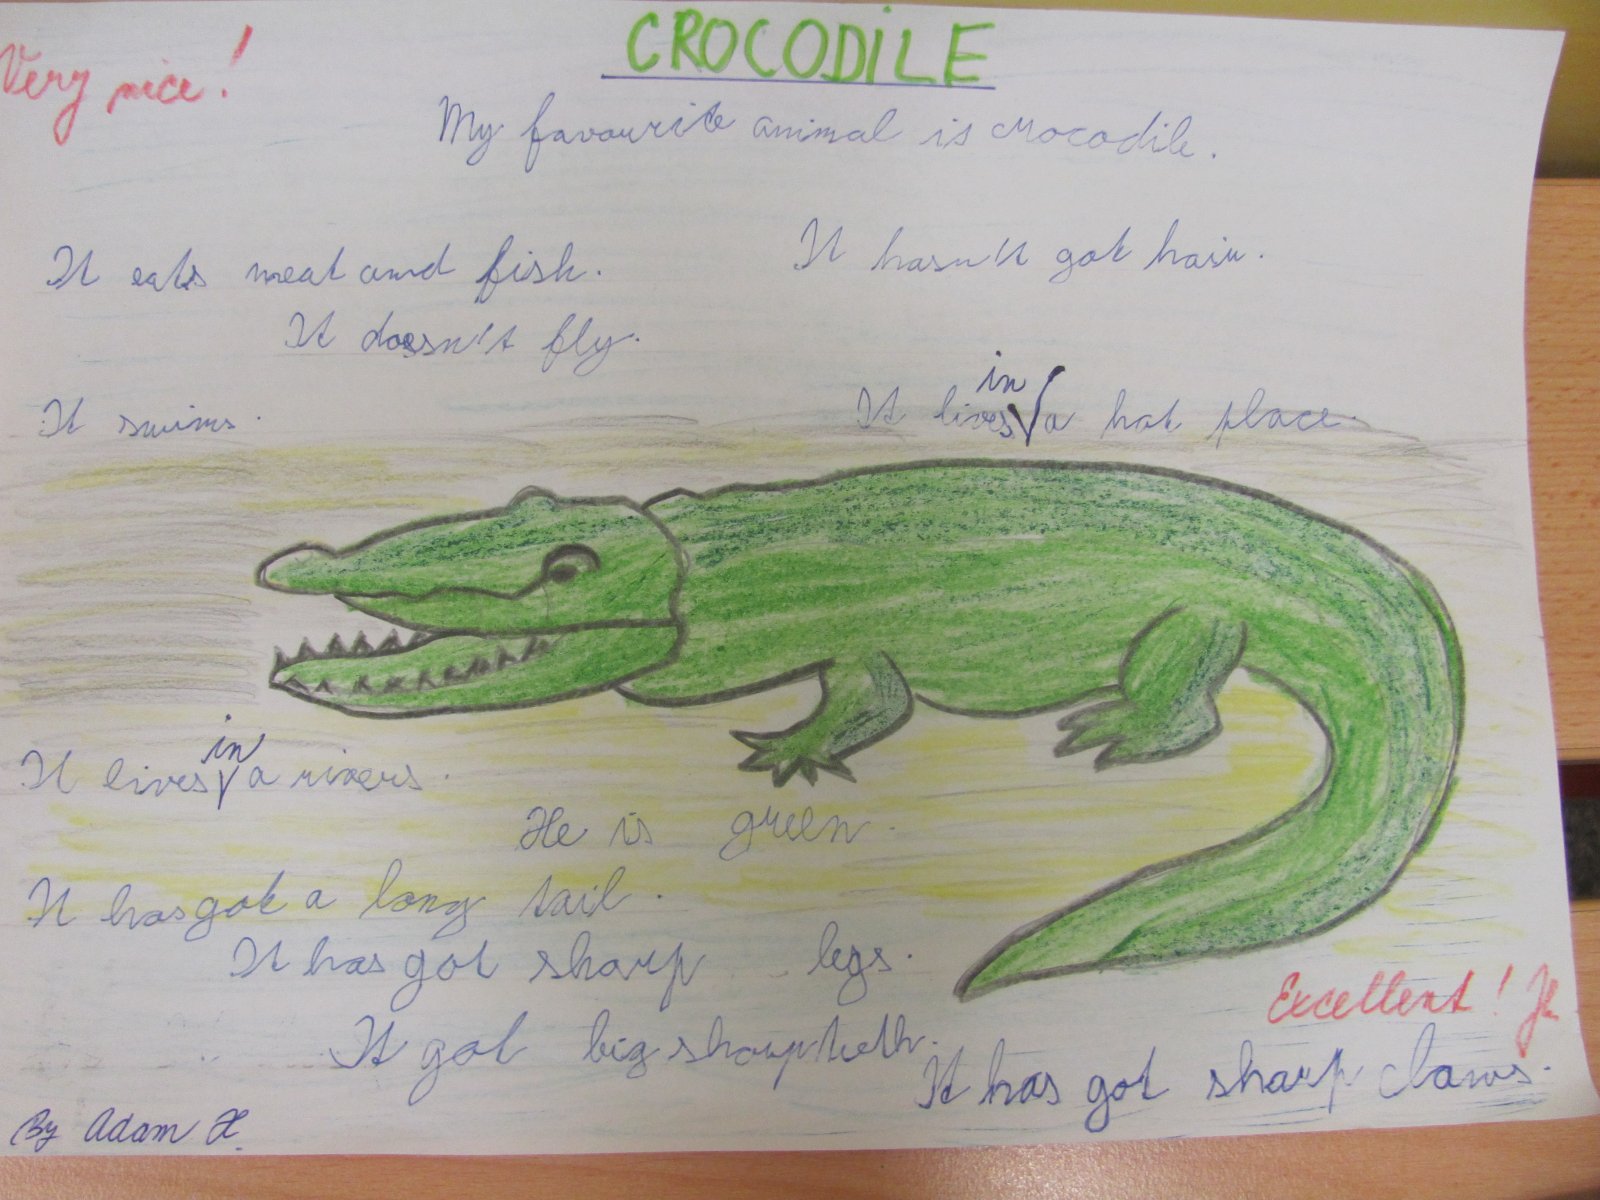 CROCODILE
Very nice!
My favourite animal is crocodile.
It eats meat and fish.
It hasn't got hair.
It doesn't fly.
It swims.
It lives in a hot place.
It lives in a rivers.
He is green.
It has got a long tail.
It has got sharp legs.
Excellent!
It got big sharp teeth.
It has got sharp claws.
By Adam H.